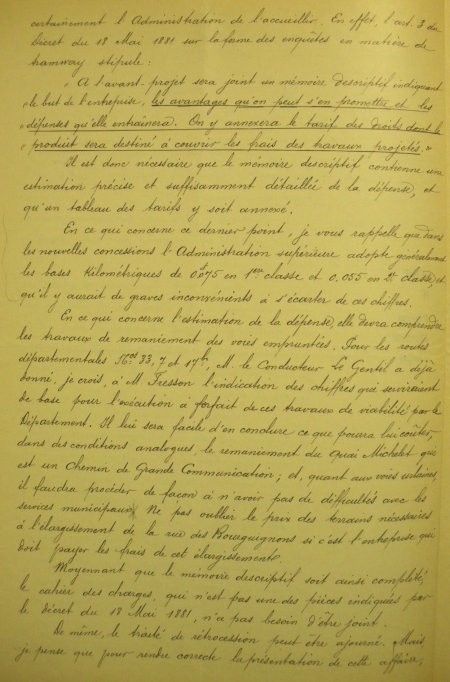 certainement l'Administration de l'accueillir. En effet, l'art. 3 du
Décret du 18 Mai 1881 sur la forme des enquêtes en matière de
tramway stipule:
" A l'avant-projet sera joint un mémoire descriptif indiquant
" le but de l'entreprise, les avantages qu'on peut s'en promettre et les
" dépenses qu'elle entraînera. On y annexera le tarif des droits dont le
" produit sera destiné à couvrir les frais des travaux projetés. "
Il est donc nécessaire que le mémoire descriptif contienne une
estimation précise et suffisamment détaillée de la dépense, et
qu'un tableau des tarifs y soit annexé.
En ce qui concerne ce dernier point, je vous rappelle que dans
les nouvelles concessions l'Administration supérieure adopte généralement
les bases kilométriques de 0f075 en 1ère classe et 0,055 en 2e classe, et
qu'il y aurait de graves inconvénients à s'écarter de ces chiffres.
En ce qui concerne l'estimation de la dépense, elle devra comprendre
les travaux de remaniement des voies empruntées. Pour les routes
départementales Nos 33, 7 et 17bis, M. le Conducteur Le Gentel a déjà
donné, je crois, à M. Fresson l'indication des chiffres que serviraient
de base pour l'exécution à forfait de ces travaux de viabilité par le
Département. Il lui sera facile d'en conclure ce que pourra lui coûter,
dans des conditions analogues, le remaniement du Quai Michelet qui
est un Chemin de Grande Communication; et, quant aux voies urbaines,
il faudra procéder de façon à n'avoir pas de difficultés avec les
services municipaux. Ne pas oublier le prix des terrains nécessaires
à l'élargissement de la rue des Bourguignons si c'est l'entreprise qui
doit payer les frais de cet élargissement.
Moyennant que le mémoire descriptif soit ainsi complété,
le cahier des charges, qui n'est pas une des pièces indiquées par
le décret du 18 Mai 1881, n'a pas besoin d'être joint.
De même, le traité de rétrocession peut être ajourné. Mais
je pense que pour rendre correcte la présentation de cette affaire,